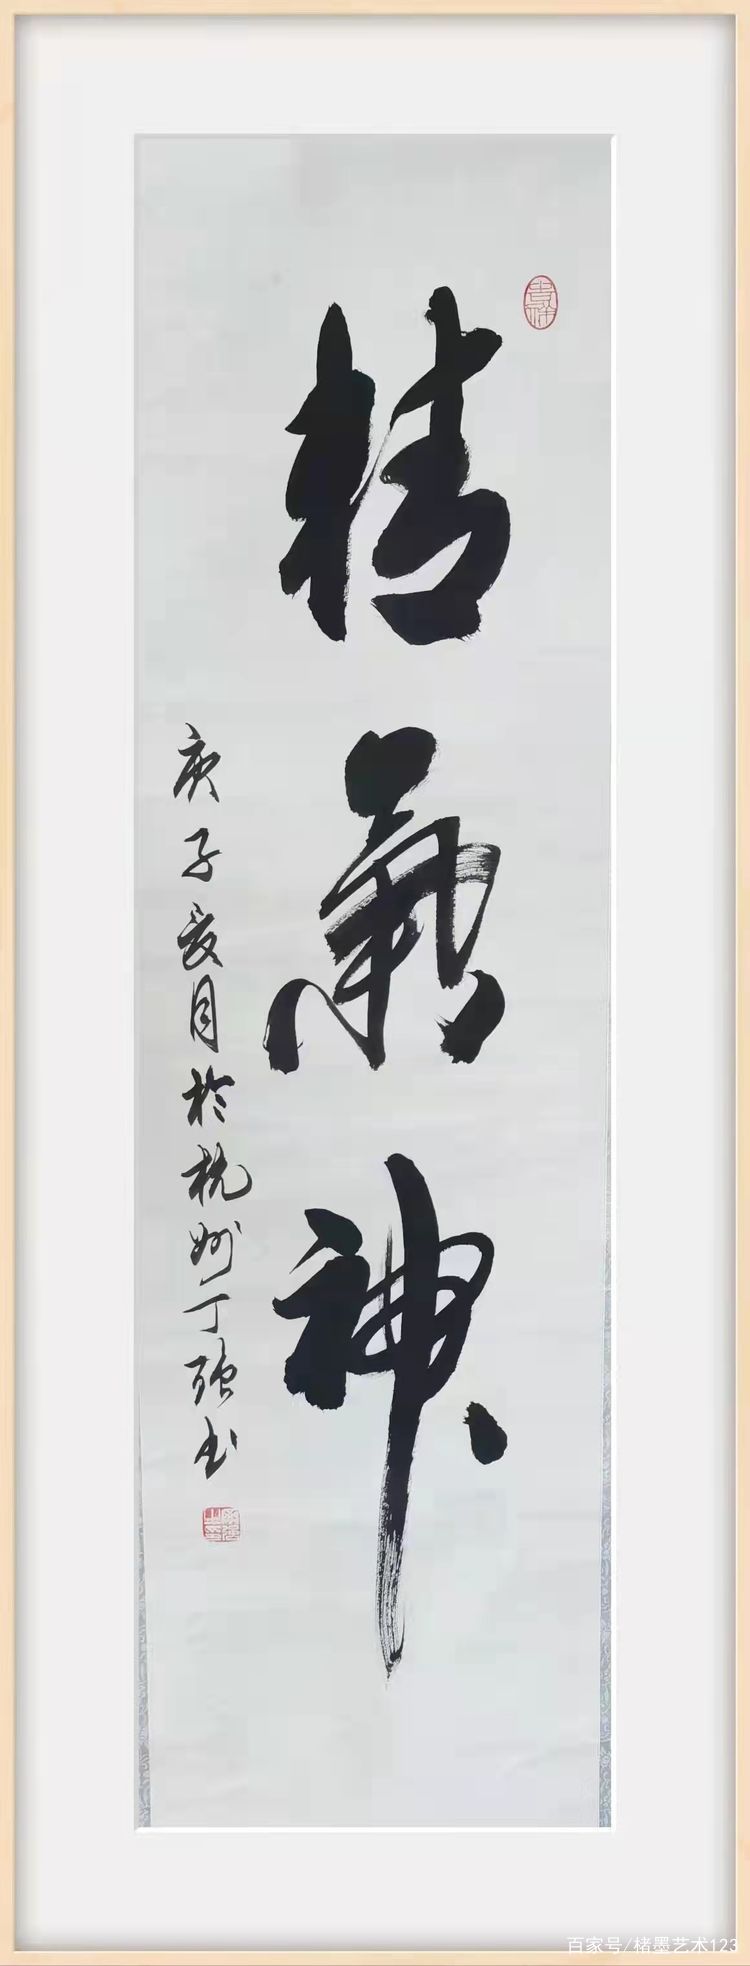 吉祥
精氣神
庚子夏月於杭州丁强书
百家号/楮墨艺术123